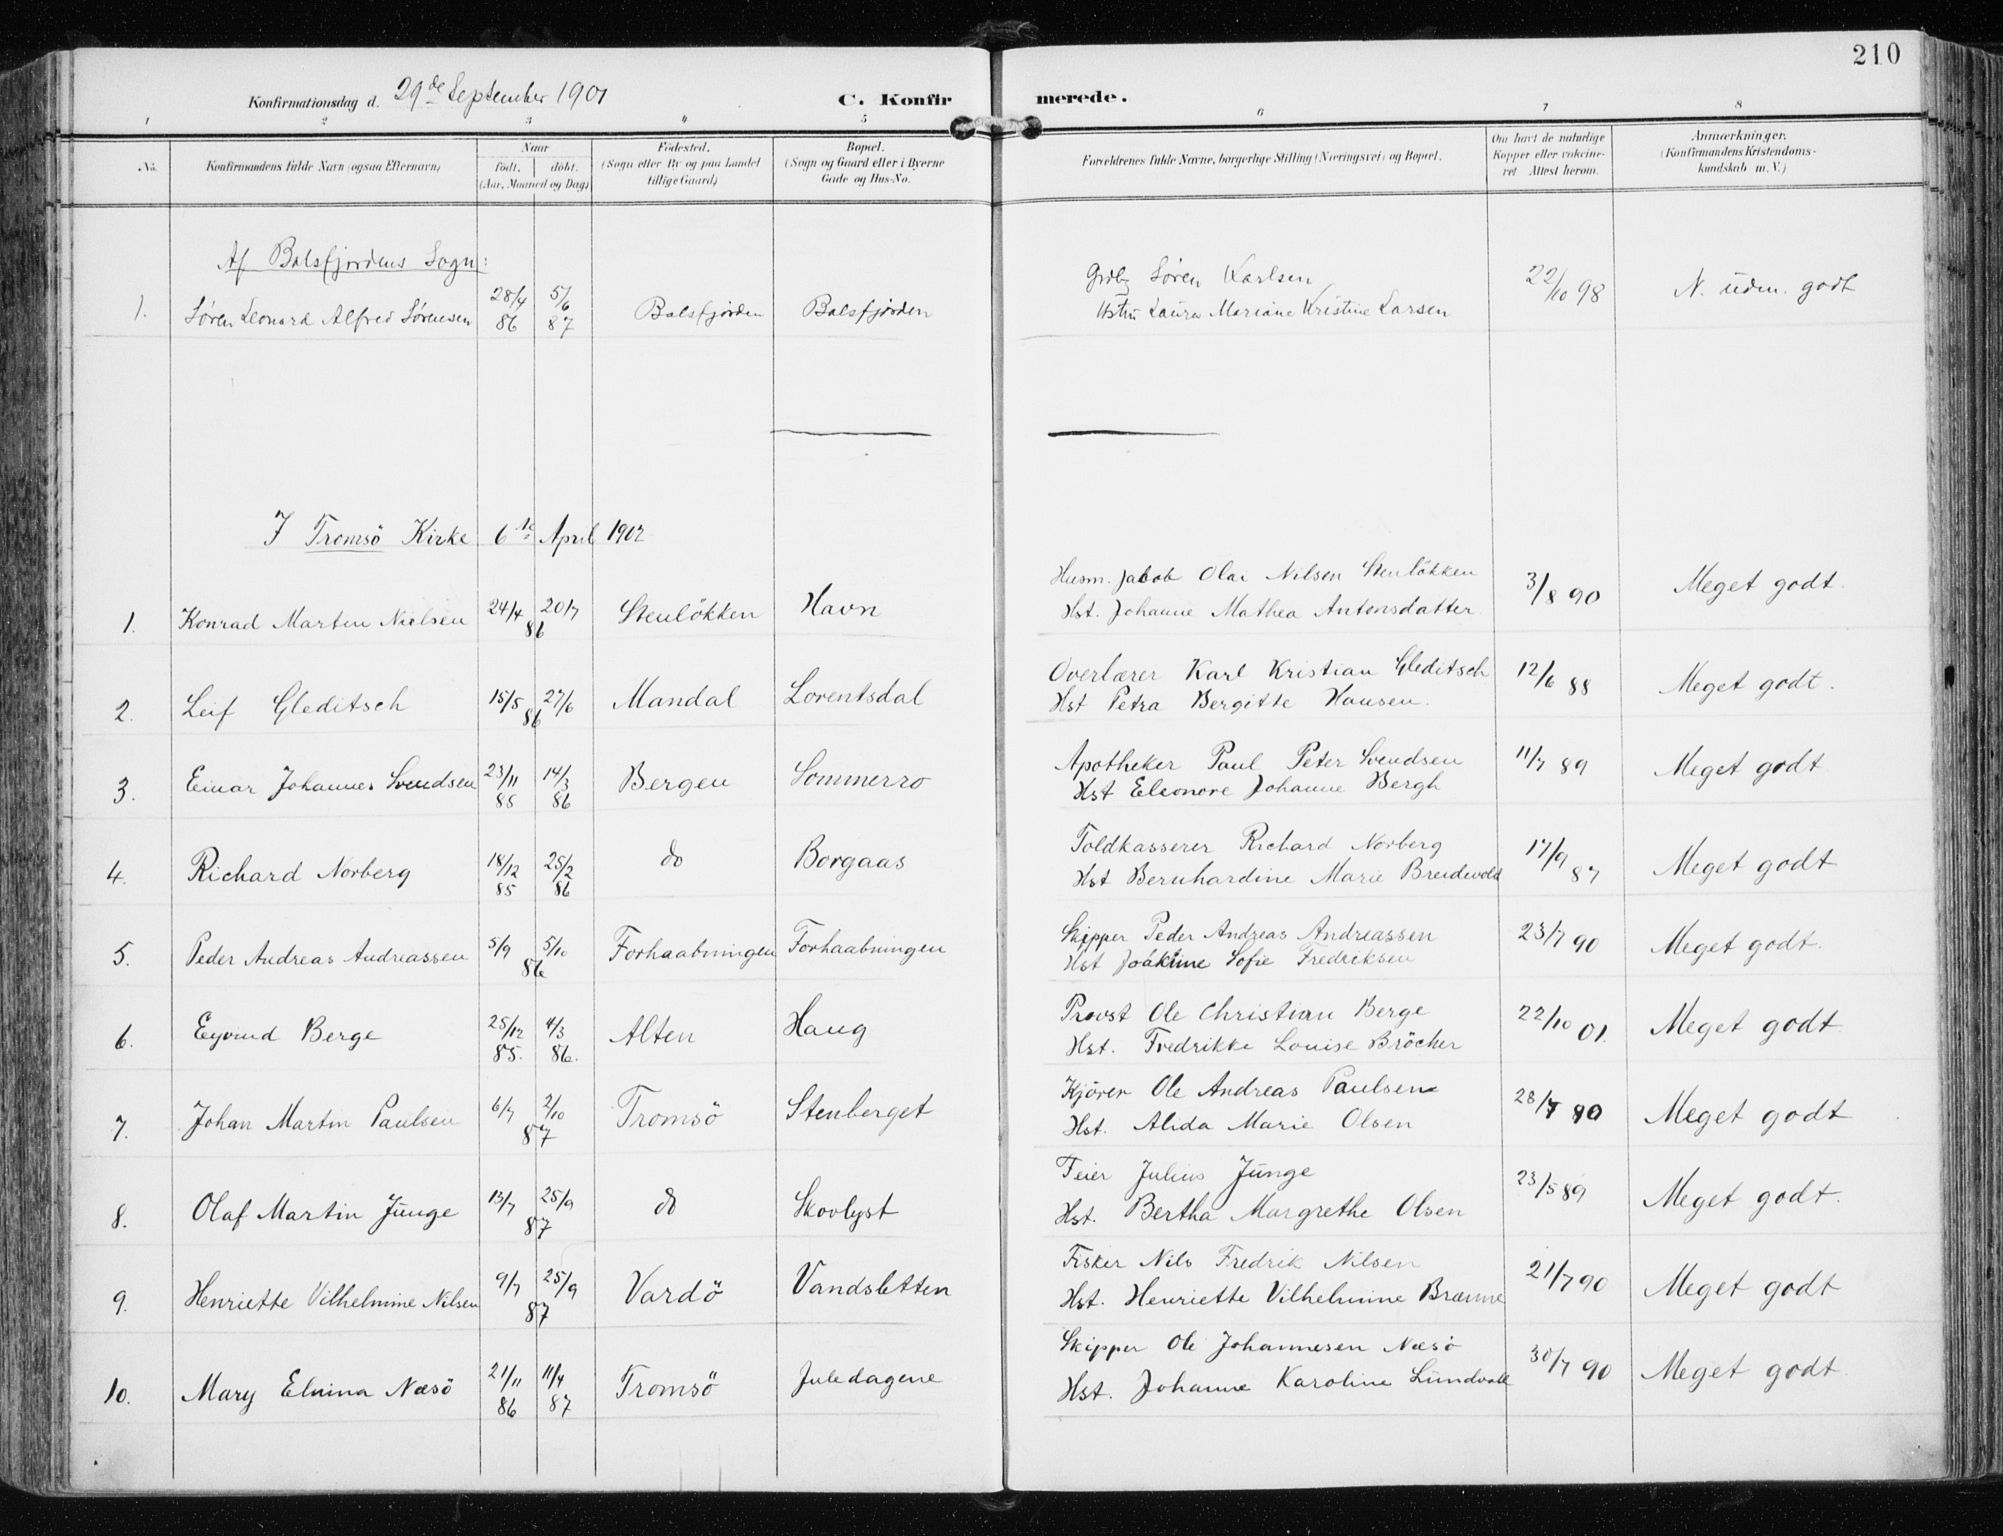 210
Konfirmationsdag d. 29de September 1901 C. Konfirmerede.
1 2 3 4 5 6 7 8
No. Konfirmandens fulde Navn (ogsaa Efternavn) Naar født, døbt. (Aar, Maaned og Dag) Fødested. (Sogn eller By og paa Landet tillige Gaard) Bopæl. (Sogn og Gaard eller i Byerne Gade og Hus-No. Forældrenes fulde Navne, borgerlige Stilling (Næringsvei) og Bopæl. Om havt de naturlige Kopper eller vakcineret Attest herom. Anmærkninger. (Konfirmandens Kristendomskundskab m. V.)
Af Balsfjordens Sogn:
Søren Karlsen
1. Søren Leonard Alfred Sørensen 28/4 86 5/6 87 Balsfjorden Balsfjorden Laura Mariane Kristine Larsen 22/10 98 N. udm. godt
I Tromsö Kirke 6te April 1902
Husm. Jakob Olai Nilsen Stenlökken
1. Konrad Martin Nielsen 24/4 20/7 86 Stenlökken Havn Hst. Johanne Mathea Antonsdatter 3/8 90 Meget godt.
Overlærer Karl Kristian Gleditsch
2. Leif Gleditsch 15/5 27/6 86 Mandal Lorentsdal Hst Petra Bergitte Hansen. 12/6 88 Meget godt.
Apotheker Paul Peter Svendsen
3. Einar Johannes Svendsen 23/11 85 14/3 86 Bergen Sommerro Hst Eleonore Johanne Bergh 11/7 89 Meget godt
Toldkasserer Richard Norberg
4. Richard Norberg 18/12 85 25/2 86 do Borgaas Hst Bernhardine Marie Breidevold 17/9 87 Meget godt
Skipper Peder Andreas Andreassen
5. Peder Andreas Andreassen 5/9 5/10 86 Forhaabningen Forhaabningen Hst Joakime Sofie Fredriksen 23/7 90 Meget godt.
Provst Ole Christian Berge
6. Eyvind Berge 25/12 85. 4/3 86. Alten Haug Hst. Fredrikke Louise Bröcher 22/10 01. Meget godt.
Kjörer Ole Andreas Paulsen
7. Johan Martin Paulsen 6/7 2/10 87 Tromsö Stenberget Hst. Alida Marie Olsen 28/7 90 Meget godt
Feier Julius Junge
8. Olaf Martin Junge 13/7 25/9 87 do Skovlyst Hst. Bertha Margrethe Olsen 23/5 89 Meget godt.
Fisker Nils Fredrik Nilsen
9. Henriette Vilhelmine Nilsen 9/7 25/9 87 Vardö Vandsletten Hst. Henriette Vilhelmine 21/7 90 Meget godt
Skipper Ole Johannesen Næsö
10. Mary Elvina Næsö 21/11 86 11/4 87 Tromsö Juledagene Hst. Johanne Karoline Lundvall 30/7 90 Meget godt